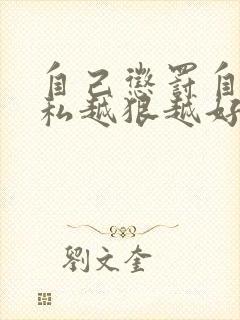 自己懲罰自
私越狠越好
劉文奎